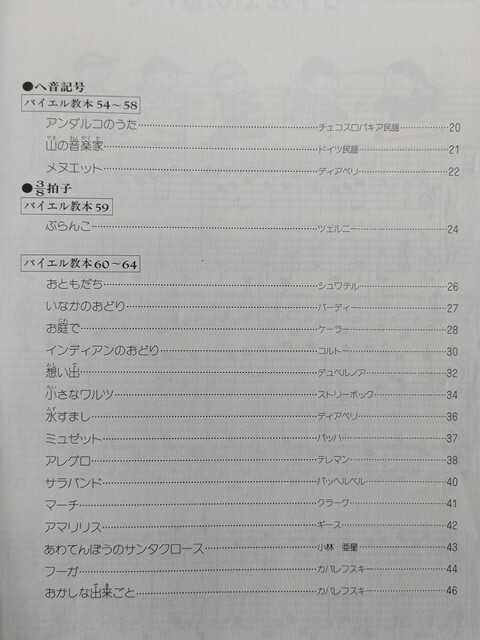 ●ヘ音記号
バイエル教本54～58
アンダルコのうた……チェコスロバキア民謡……20
山の音楽家……ドイツ民謡……21
メヌエット……ディアベリ……22
●3/8拍子
バイエル教本59
ぶらんこ……ツェルニー……24
バイエル教本60～64
おともだち……シュワテル……26
いなかのおどり……パーディー……27
お庭で……ケーラー……28
インディアンのおどり……コルトー……30
想い出……デュベルノア……32
小さなワルツ……ストリーボック……34
水すまし……ディアベリ……36
ミュゼット……バッハ……37
アレグロ……テレマン……38
サラバンド……パッヘルベル……40
マーチ……クラーク……41
アマリリス……ギース……42
あわてんぼうのサンタクロース……小林　亜星……43
フーガ……カバレフスキー……44
おかしな出来ごと……カバレフスキー……46